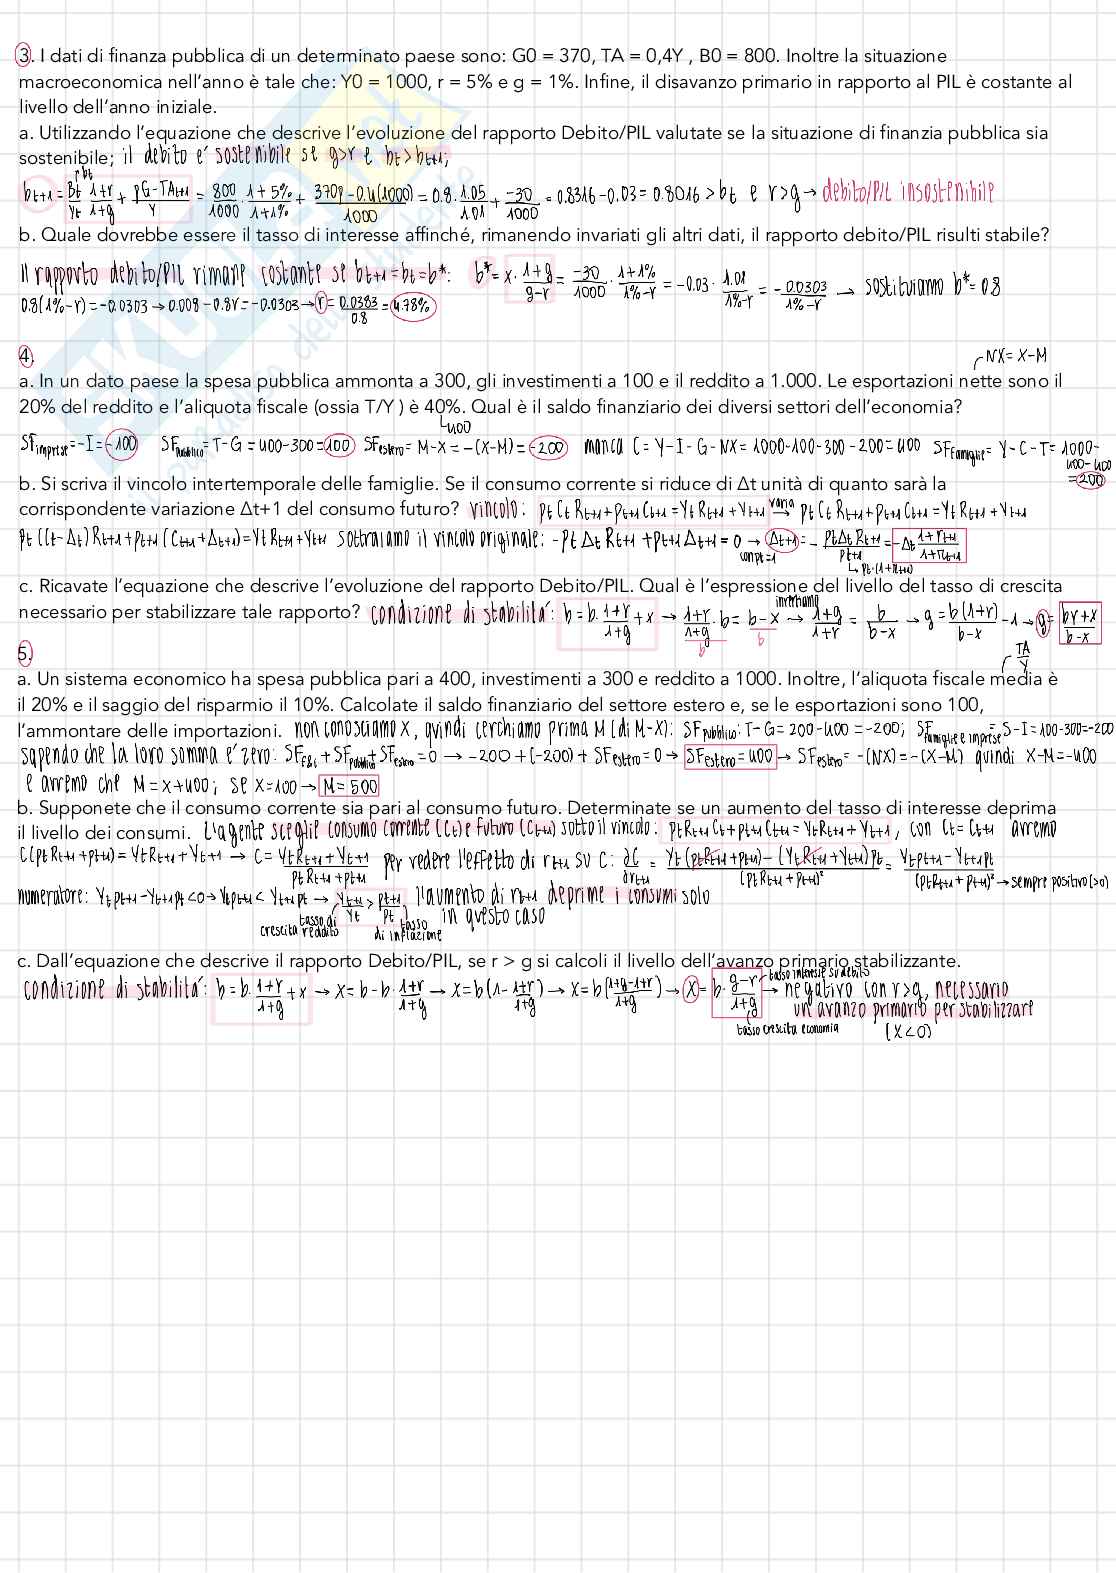 3. I dati di finanza pubblica di un determinato paese sono: G0 = 370, TA = 0,4Y , B0 = 800. Inoltre la situazione
macroeconomica nell'anno è tale che: Y0 = 1000, r = 5% e g = 1%. Infine, il disavanzo primario in rapporto al PIL è costante al
livello dell'anno iniziale.
a. Utilizzando l'equazione che descrive l'evoluzione del rapporto Debito/PIL valutate se la situazione di finanzia pubblica sia
sostenibile; il debito e' sostenibile se g>r e bt>bt+1;
bt+1 = Bt/Yt (bt) · 1+r/1+g + pG-TAt+1/Y = 800/1000 · 1+5%/1+1% + 370-0.4(1000)/1000 = 0.8 · 1.05/1.01 + -30/1000 = 0.8316-0.03 = 0.8016 > bt e r>g → debito/PIL insostenibile
b. Quale dovrebbe essere il tasso di interesse affinché, rimanendo invariati gli altri dati, il rapporto debito/PIL risulti stabile?
Il rapporto debito/PIL rimane costante se bt+1=bt=b*: b* = x · 1+g/g-r = -30/1000 · 1+1%/1%-r = -0.03 · 1.01/1%-r = -0.0303/1%-r → sostituiamo b*=0.8
0.8(1%-r)=-0.0303 → 0.008-0.8r=-0.0303 → r = 0.0383/0.8 = 4.78%
4.
NX = X-M
a. In un dato paese la spesa pubblica ammonta a 300, gli investimenti a 100 e il reddito a 1.000. Le esportazioni nette sono il
20% del reddito e l'aliquota fiscale (ossia T/Y ) è 40%. Qual è il saldo finanziario dei diversi settori dell'economia?
400
SFimprese=-I=-100 SFpubblico=T-G=400-300=100 SFestero=M-X=-(X-M)=-200 manca C=Y-I-G-NX=1000-100-300-200=400 SFfamiglie=Y-C-T=1000-400-400=200
b. Si scriva il vincolo intertemporale delle famiglie. Se il consumo corrente si riduce di Δt unità di quanto sarà la
corrispondente variazione Δt+1 del consumo futuro? vincolo: ptCtRt+1+pt+1Ct+1=YtRt+1+Yt+1 varia → ptCtRt+1+pt+1Ct+1=YtRt+1+Yt+1
pt(Ct-Δt)Rt+1+pt+1(Ct+1+Δt+1)=YtRt+1+Yt+1 sottraiamo il vincolo originale: -ptΔtRt+1+pt+1Δt+1=0 → con pt=1 Δt+1 = -ptΔtRt+1/pt+1 = -Δt 1+rt+1/1+πt+1
pt·(1+πt+1)
c. Ricavate l'equazione che descrive l'evoluzione del rapporto Debito/PIL. Qual è l'espressione del livello del tasso di crescita
necessario per stabilizzare tale rapporto? condizione di stabilita': b=b·1+r/1+g+x → 1+r/1+g · b/b = b-x/b → invertiamo 1+g/1+r = b/b-x → g = b(1+r)/b-x - 1 → g = br+x/b-x
5.
TA/Y
a. Un sistema economico ha spesa pubblica pari a 400, investimenti a 300 e reddito a 1000. Inoltre, l'aliquota fiscale media è
il 20% e il saggio del risparmio il 10%. Calcolate il saldo finanziario del settore estero e, se le esportazioni sono 100,
l'ammontare delle importazioni. non conosciamo X, quindi cerchiamo prima M (di M-X): SFpubblico: T-G=200-400=-200; SFfamiglie e imprese=S-I=100-300=-200
sapendo che la loro somma e' zero: SFF&I+SFpubblico+SFestero=0 → -200+(-200)+SFestero=0 → SFestero=400 → SFestero=-(NX)=-(X-M) quindi X-M=-400
e avremo che M=X+400; se X=100 → M=500
b. Supponete che il consumo corrente sia pari al consumo futuro. Determinate se un aumento del tasso di interesse deprima
il livello dei consumi. L'agente sceglie consumo corrente (Ct) e futuro (Ct+1) sotto il vincolo: ptRt+1Ct+pt+1Ct+1=YtRt+1+Yt+1, con Ct=Ct+1 avremo
C(ptRt+1+pt+1)=YtRt+1+Yt+1 → C = YtRt+1+Yt+1/ptRt+1+pt+1 per vedere l'effetto di rt+1 su C: ∂C/∂rt+1 = Yt(ptRt+1+pt+1)-(YtRt+1+Yt+1)pt/(ptRt+1+pt+1)² = Ytpt+1-Yt+1pt/(ptRt+1+pt+1)² → sempre positivo (>0)
numeratore: Ytpt+1-Yt+1pt<0 → Ytpt+1<Yt+1pt → Yt+1/Yt > pt+1/pt, l'aumento di rt+1 deprime i consumi solo in questo caso
tasso di crescita reddito tasso di inflazione
c. Dall'equazione che descrive il rapporto Debito/PIL, se r > g si calcoli il livello dell'avanzo primario stabilizzante.
condizione di stabilita': b=b·1+r/1+g+x → x=b-b·1+r/1+g → x=b(1-1+r/1+g) → x=b(1+g-1+r/1+g) → x=b·g-r/1+g → negativo con r>g, necessario un avanzo primario per stabilizzare (x<0)
tasso interesse su debito
tasso crescita economia